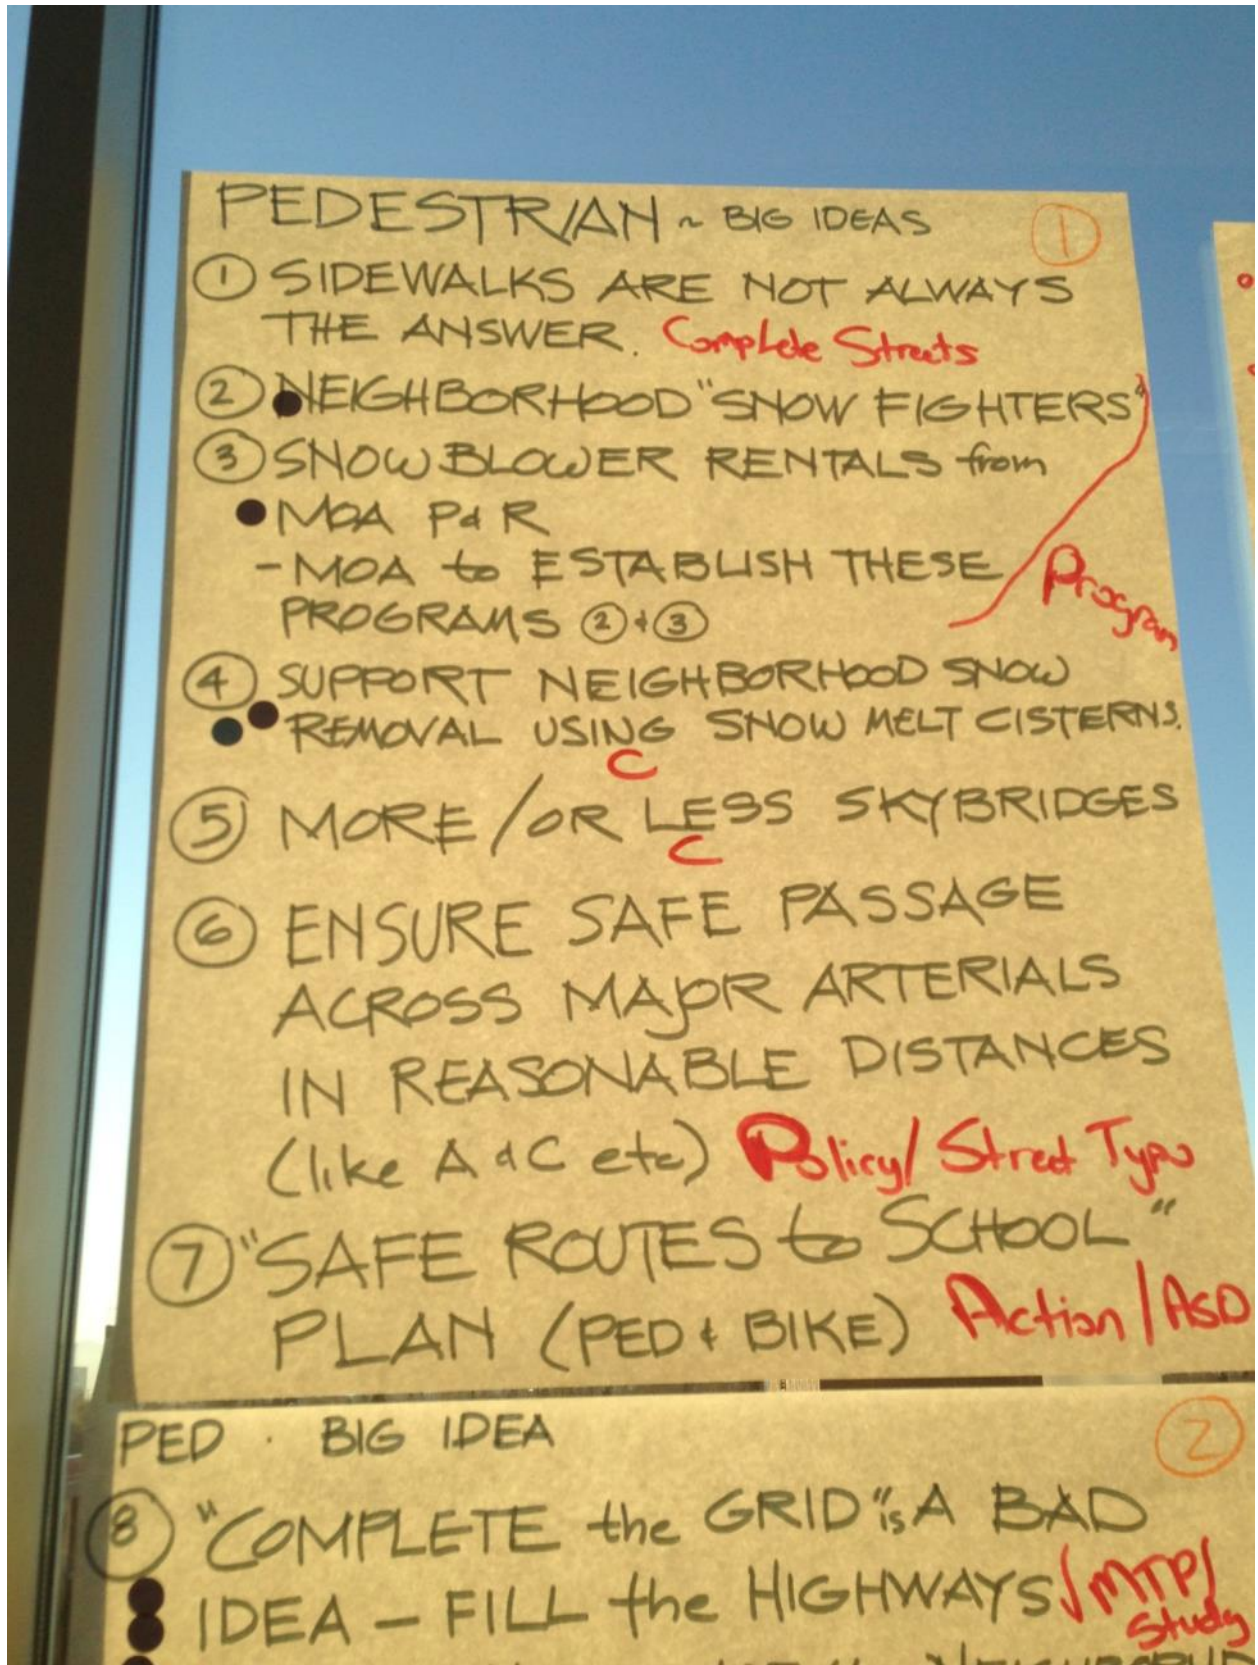 PEDESTRIAN ~ BIG IDEAS ①
① SIDEWALKS ARE NOT ALWAYS
THE ANSWER. Complete Streets
② NEIGHBORHOOD "SNOW FIGHTERS"
③ SNOW BLOWER RENTALS from
MOA P & R
- MOA to ESTABLISH THESE
PROGRAMS ② & ③ Program
④ SUPPORT NEIGHBORHOOD SNOW
REMOVAL USING SNOW MELT CISTERNS.
C
⑤ MORE / OR LESS SKYBRIDGES
C
⑥ ENSURE SAFE PASSAGE
ACROSS MAJOR ARTERIALS
IN REASONABLE DISTANCES
(like A & C etc) Policy/ Street Typo
⑦ "SAFE ROUTES to SCHOOL"
PLAN (PED & BIKE) Action / ASD
PED . BIG IDEA ②
⑧ "COMPLETE the GRID" is A BAD
IDEA - FILL the HIGHWAYS MTP/
Study